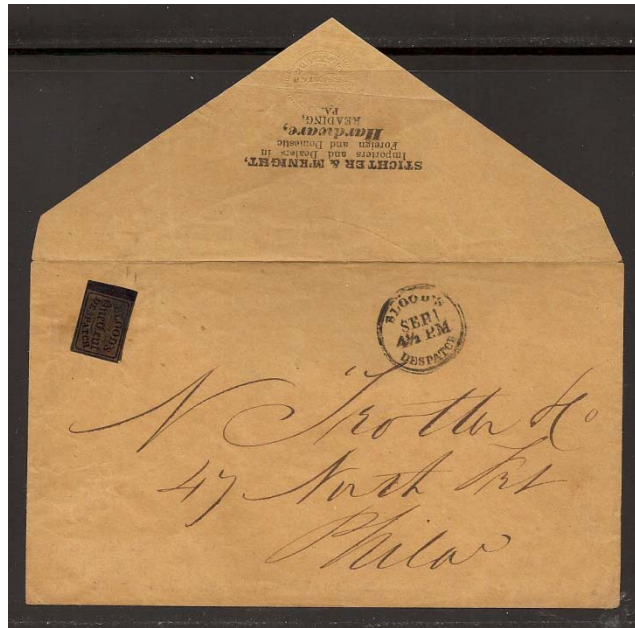 STICHTER & McKNIGHT,
Importers and Dealers in
Foreign and Domestic
Hardware,
READING,
PA.
BLOOD'S
One Cent
DESPATCH.
BLOOD'S
SEP 1
4½ PM
DESPATCH
N Trotter & Co
47 North Frt
Phila